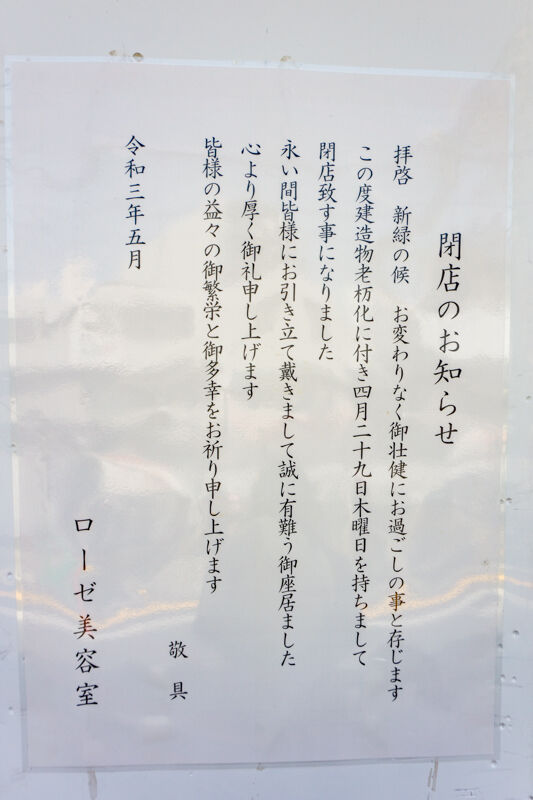 閉店のお知らせ
拝啓　新緑の候　お変わりなく御壮健にお過ごしの事と存じます
この度建造物老朽化に付き四月二十九日木曜日を持ちまして
閉店致す事になりました
永い間皆様にお引き立て戴きまして誠に有難う御座居ました
心より厚く御礼申し上げます
皆様の益々の御繁栄と御多幸をお祈り申し上げます
敬具
令和三年五月
ローゼ美容室